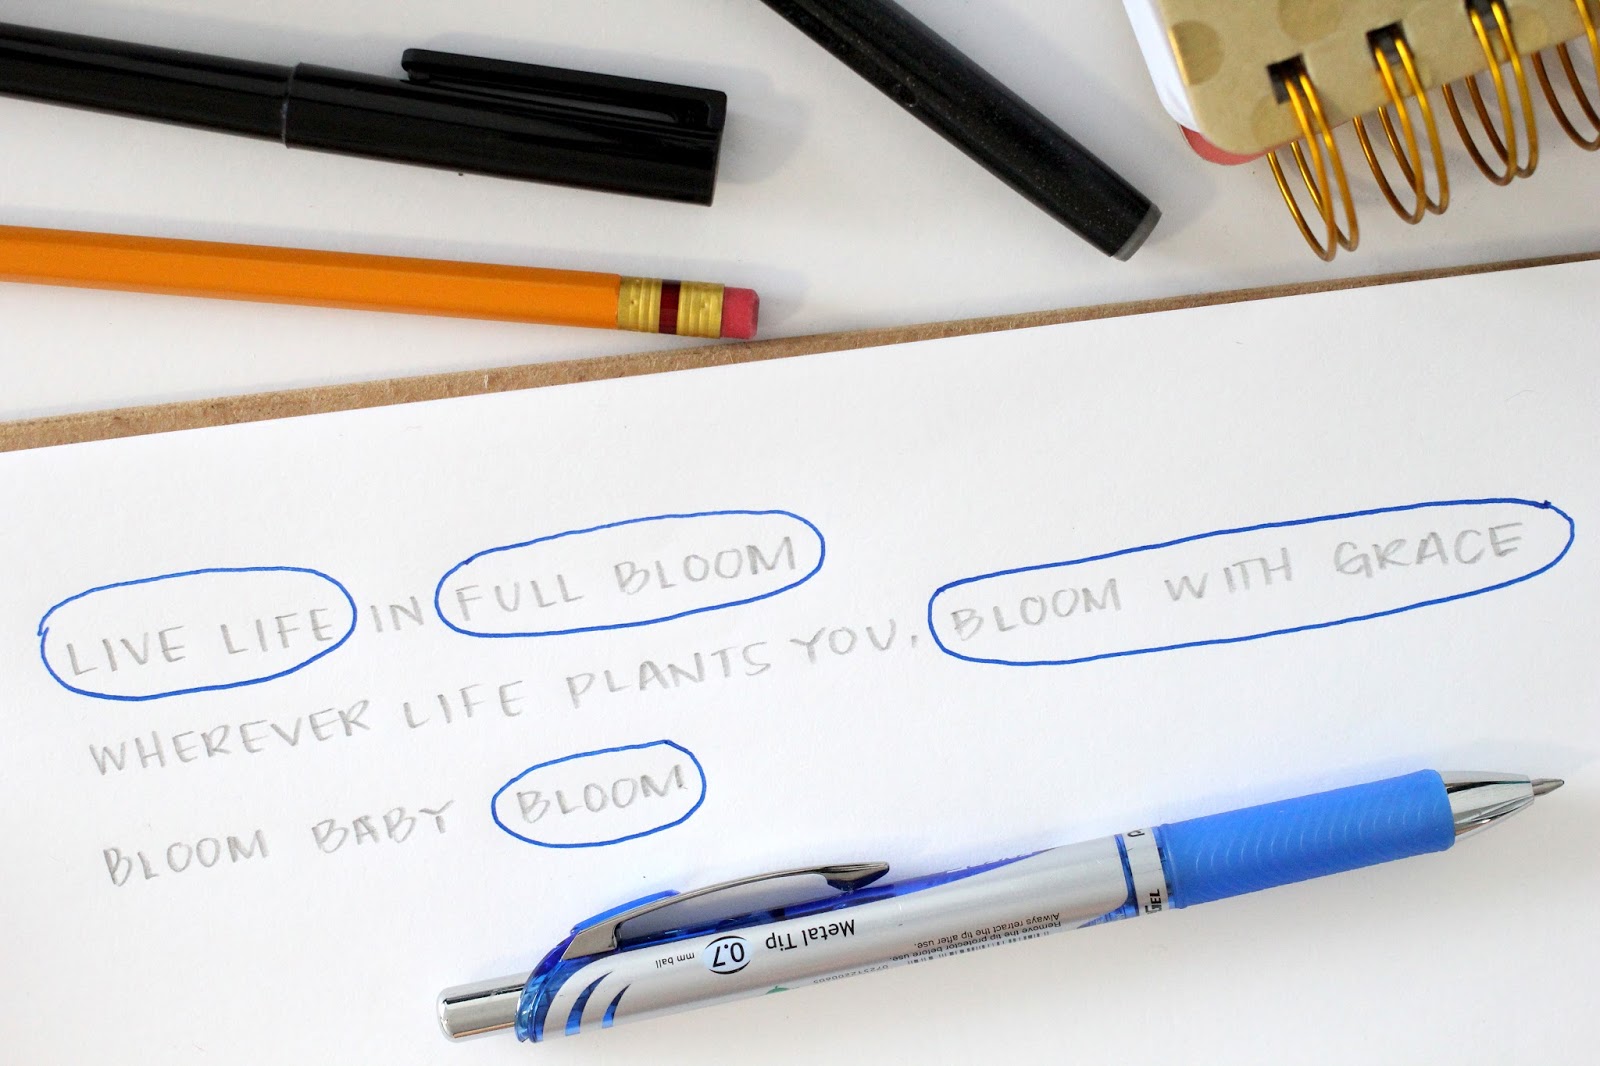 LIVE LIFE IN FULL BLOOM
WHEREVER LIFE PLANTS YOU, BLOOM WITH GRACE
BLOOM BABY BLOOM
Metal Tip 0.7 mm ball
Remove the tip protector before use.
Always retract the tip after use.
GEL